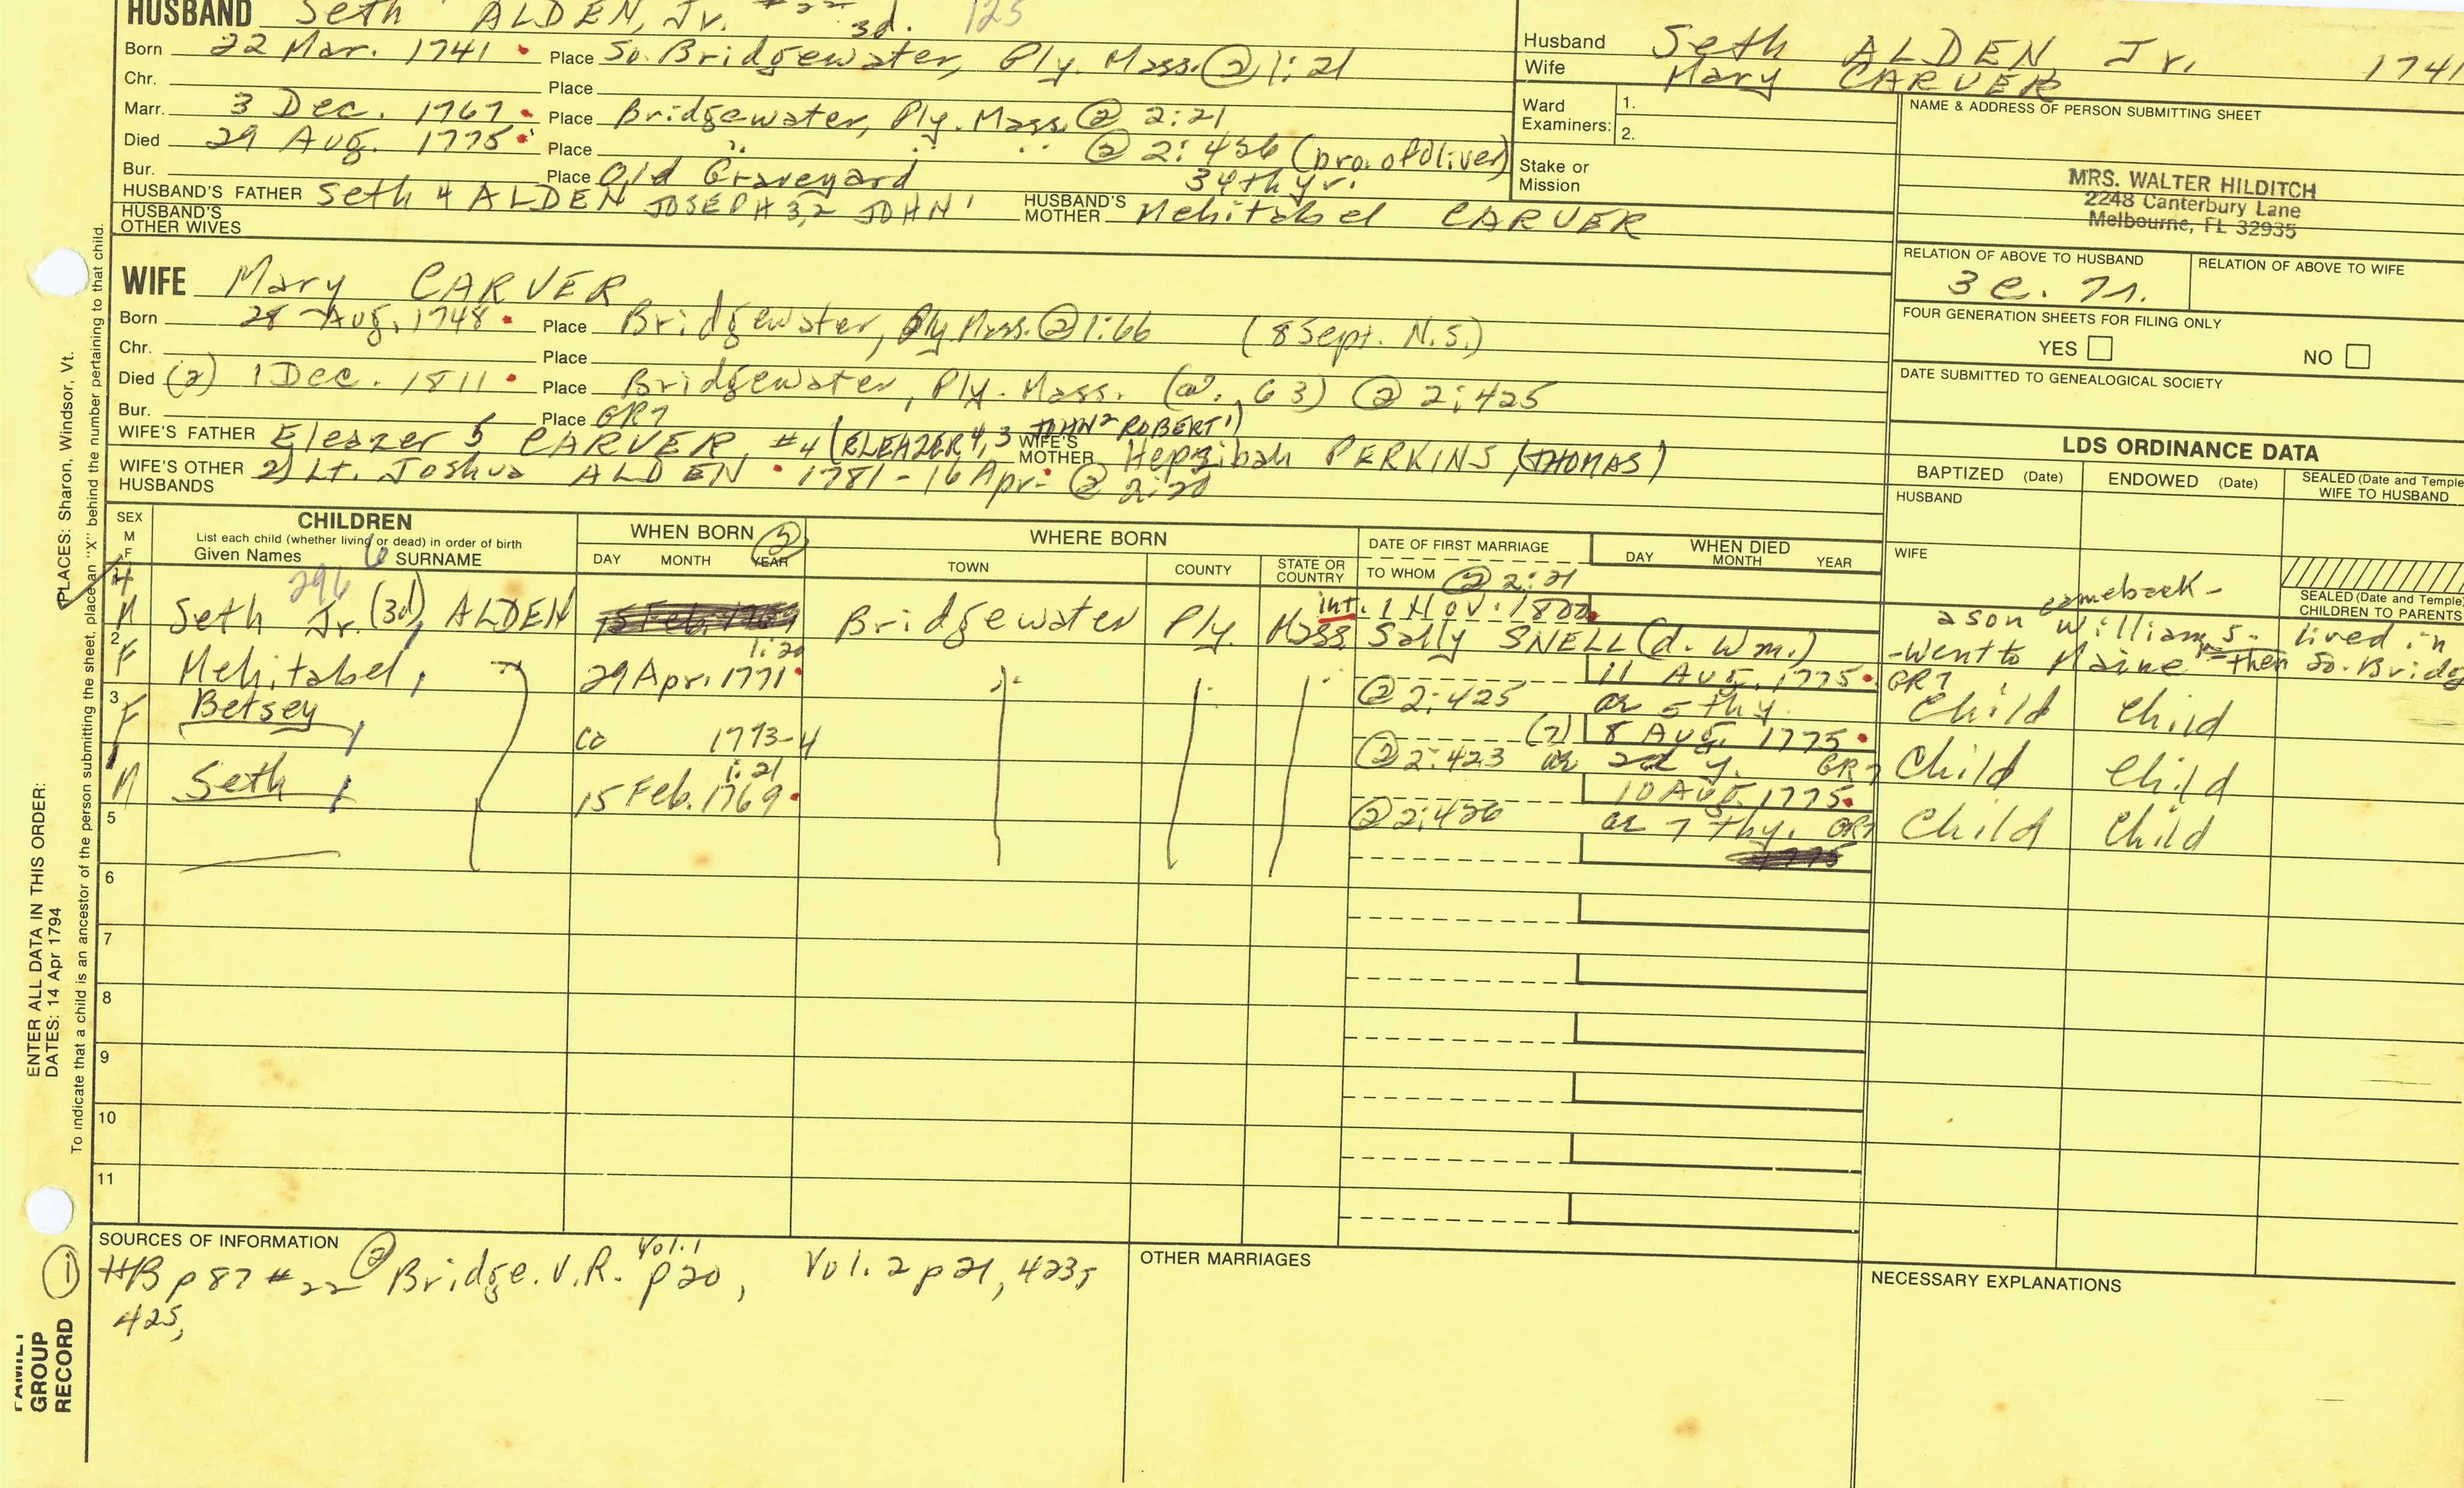 HUSBAND Seth ALDEN, Jr. #22 3d. 125
Born 22 Mar. 1741 Place So. Bridgewater, Ply. Mass. @ 1:21
Chr. Place
Marr. 3 Dec. 1767 Place Bridgewater, Ply. Mass @ 2:21
Died 29 Aug. 1775 Place " " " @ 2:426 (bro. of Oliver)
Bur. Place Old Graveyard 34th yr.
HUSBAND'S FATHER Seth 4 ALDEN JOSEPH 3,2 JOHN 1 HUSBAND'S MOTHER Mehitabel CARVER
HUSBAND'S OTHER WIVES
Husband Seth ALDEN, Jr. 1741
Wife Mary CARVER
Ward Examiners: 1.
2.
Stake or Mission
NAME & ADDRESS OF PERSON SUBMITTING SHEET
MRS. WALTER HILDITCH
2248 Canterbury Lane
Melbourne, FL 32935
RELATION OF ABOVE TO HUSBAND RELATION OF ABOVE TO WIFE
3 c.
FOUR GENERATION SHEETS FOR FILING ONLY
YES NO
DATE SUBMITTED TO GENEALOGICAL SOCIETY
WIFE Mary CARVER
Born 28 Aug. 1748 Place Bridgewater, Ply Mass. @ 1:66 (8 Sept. N.S.)
Chr. Place
Died (2) 1 Dec. 1811 Place Bridgewater, Ply. Mass. (a. 63) @ 2:425
Bur. Place GR7
WIFE'S FATHER Eleazer 5 CARVER, #4 (ELEAZER 4,3 JOHN 2 ROBERT 1) WIFE'S MOTHER Hepzibah PERKINS (THOMAS)
WIFE'S OTHER HUSBANDS 2) Lt. Joshua ALDEN 1781 - 16 Apr. @ 2:20
LDS ORDINANCE DATA
BAPTIZED (Date) ENDOWED (Date) SEALED (Date and Temple) WIFE TO HUSBAND
HUSBAND
WIFE
SEALED (Date and Temple) CHILDREN TO PARENTS
SEX M F CHILDREN WHEN BORN 2 WHERE BORN DATE OF FIRST MARRIAGE WHEN DIED
List each child (whether living or dead) in order of birth
Given Names 6 SURNAME DAY MONTH YEAR TOWN COUNTY STATE OR COUNTRY TO WHOM @ 2:21 DAY MONTH YEAR
4 M 296 Seth Jr. (3d) ALDEN Bridgewater Ply. Mass. int. 1 Nov. 1800 Sally SNELL (d. Wm.)
a son William S. - lived in
comeback -
- Went to Maine then So. Bridg
2 F Mehitabel, 1:20 29 Apr. 1771 @ 2:425 11 Aug. 1775 ae 5thy. GR7 Child Child
3 F Betsey, ca 1773-4 @ 2:423 (?) 8 Aug. 1775 ae 2d y. GR7 Child Child
1 M Seth, 1:21 15 Feb. 1769 @ 2:426 10 Aug. 1775 ae 7thy. GR7 Child Child
5
6
7
8
9
10
11
SOURCES OF INFORMATION
HB p 87 #22 2 Bridge. V.R. Vol. 1 p 20, Vol. 2 p 21, 423,
425,
OTHER MARRIAGES
NECESSARY EXPLANATIONS
FAMILY GROUP RECORD 1
ENTER ALL DATA IN THIS ORDER:
DATES: 14 Apr 1794
PLACES: Sharon, Windsor, Vt.
To indicate that a child is an ancestor of the person submitting the sheet, place an "X" behind the number pertaining to that child.